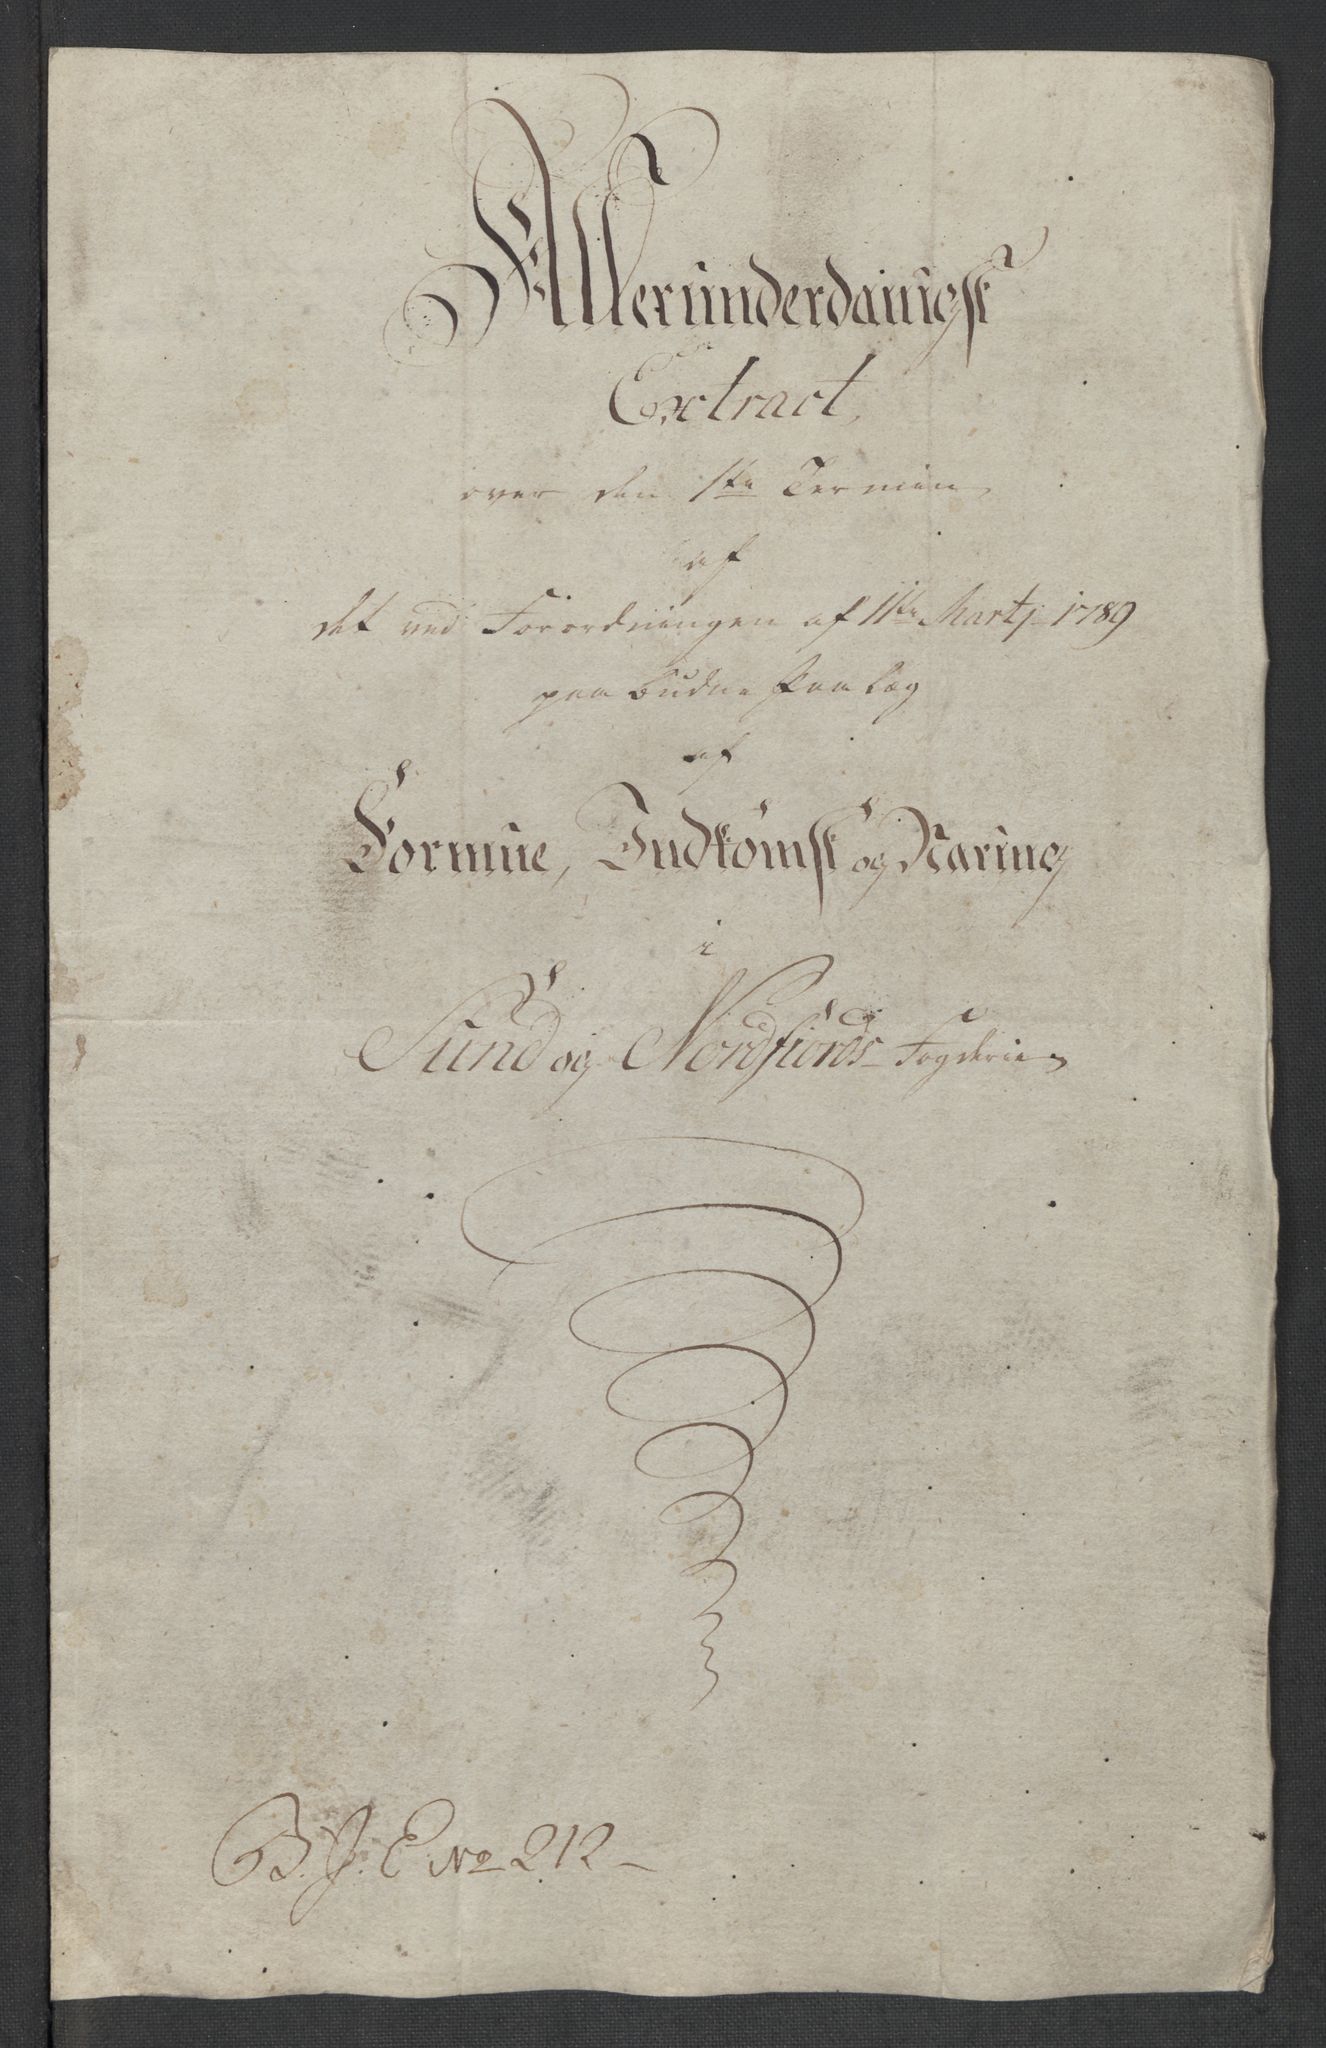 Allerunderdanigst
Extract,
over den 1ste Termin
af
det ved Forordningen af 11te Martj 1789
paabudne Paalæg
af
Formue, Indkomst og Næring
i
Sund og Nordfiords Fogderie
B. J. E. No 212